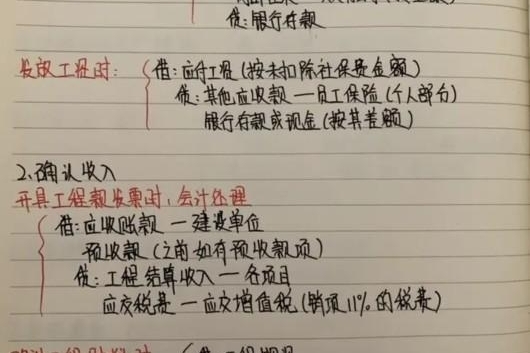 贷:银行存款
发放工资时: 借:应付工资(按未扣除社保费金额)
贷:其他应收款—员工保险(个人部分)
银行存款或现金(按其差额)
2、确认收入
开具工程款发票时,会计处理
借:应收账款—建设单位
预收款(之前如有预收款项)
贷:工程结算收入—各项目
应交税费—应交增值税(销项11%的税费)